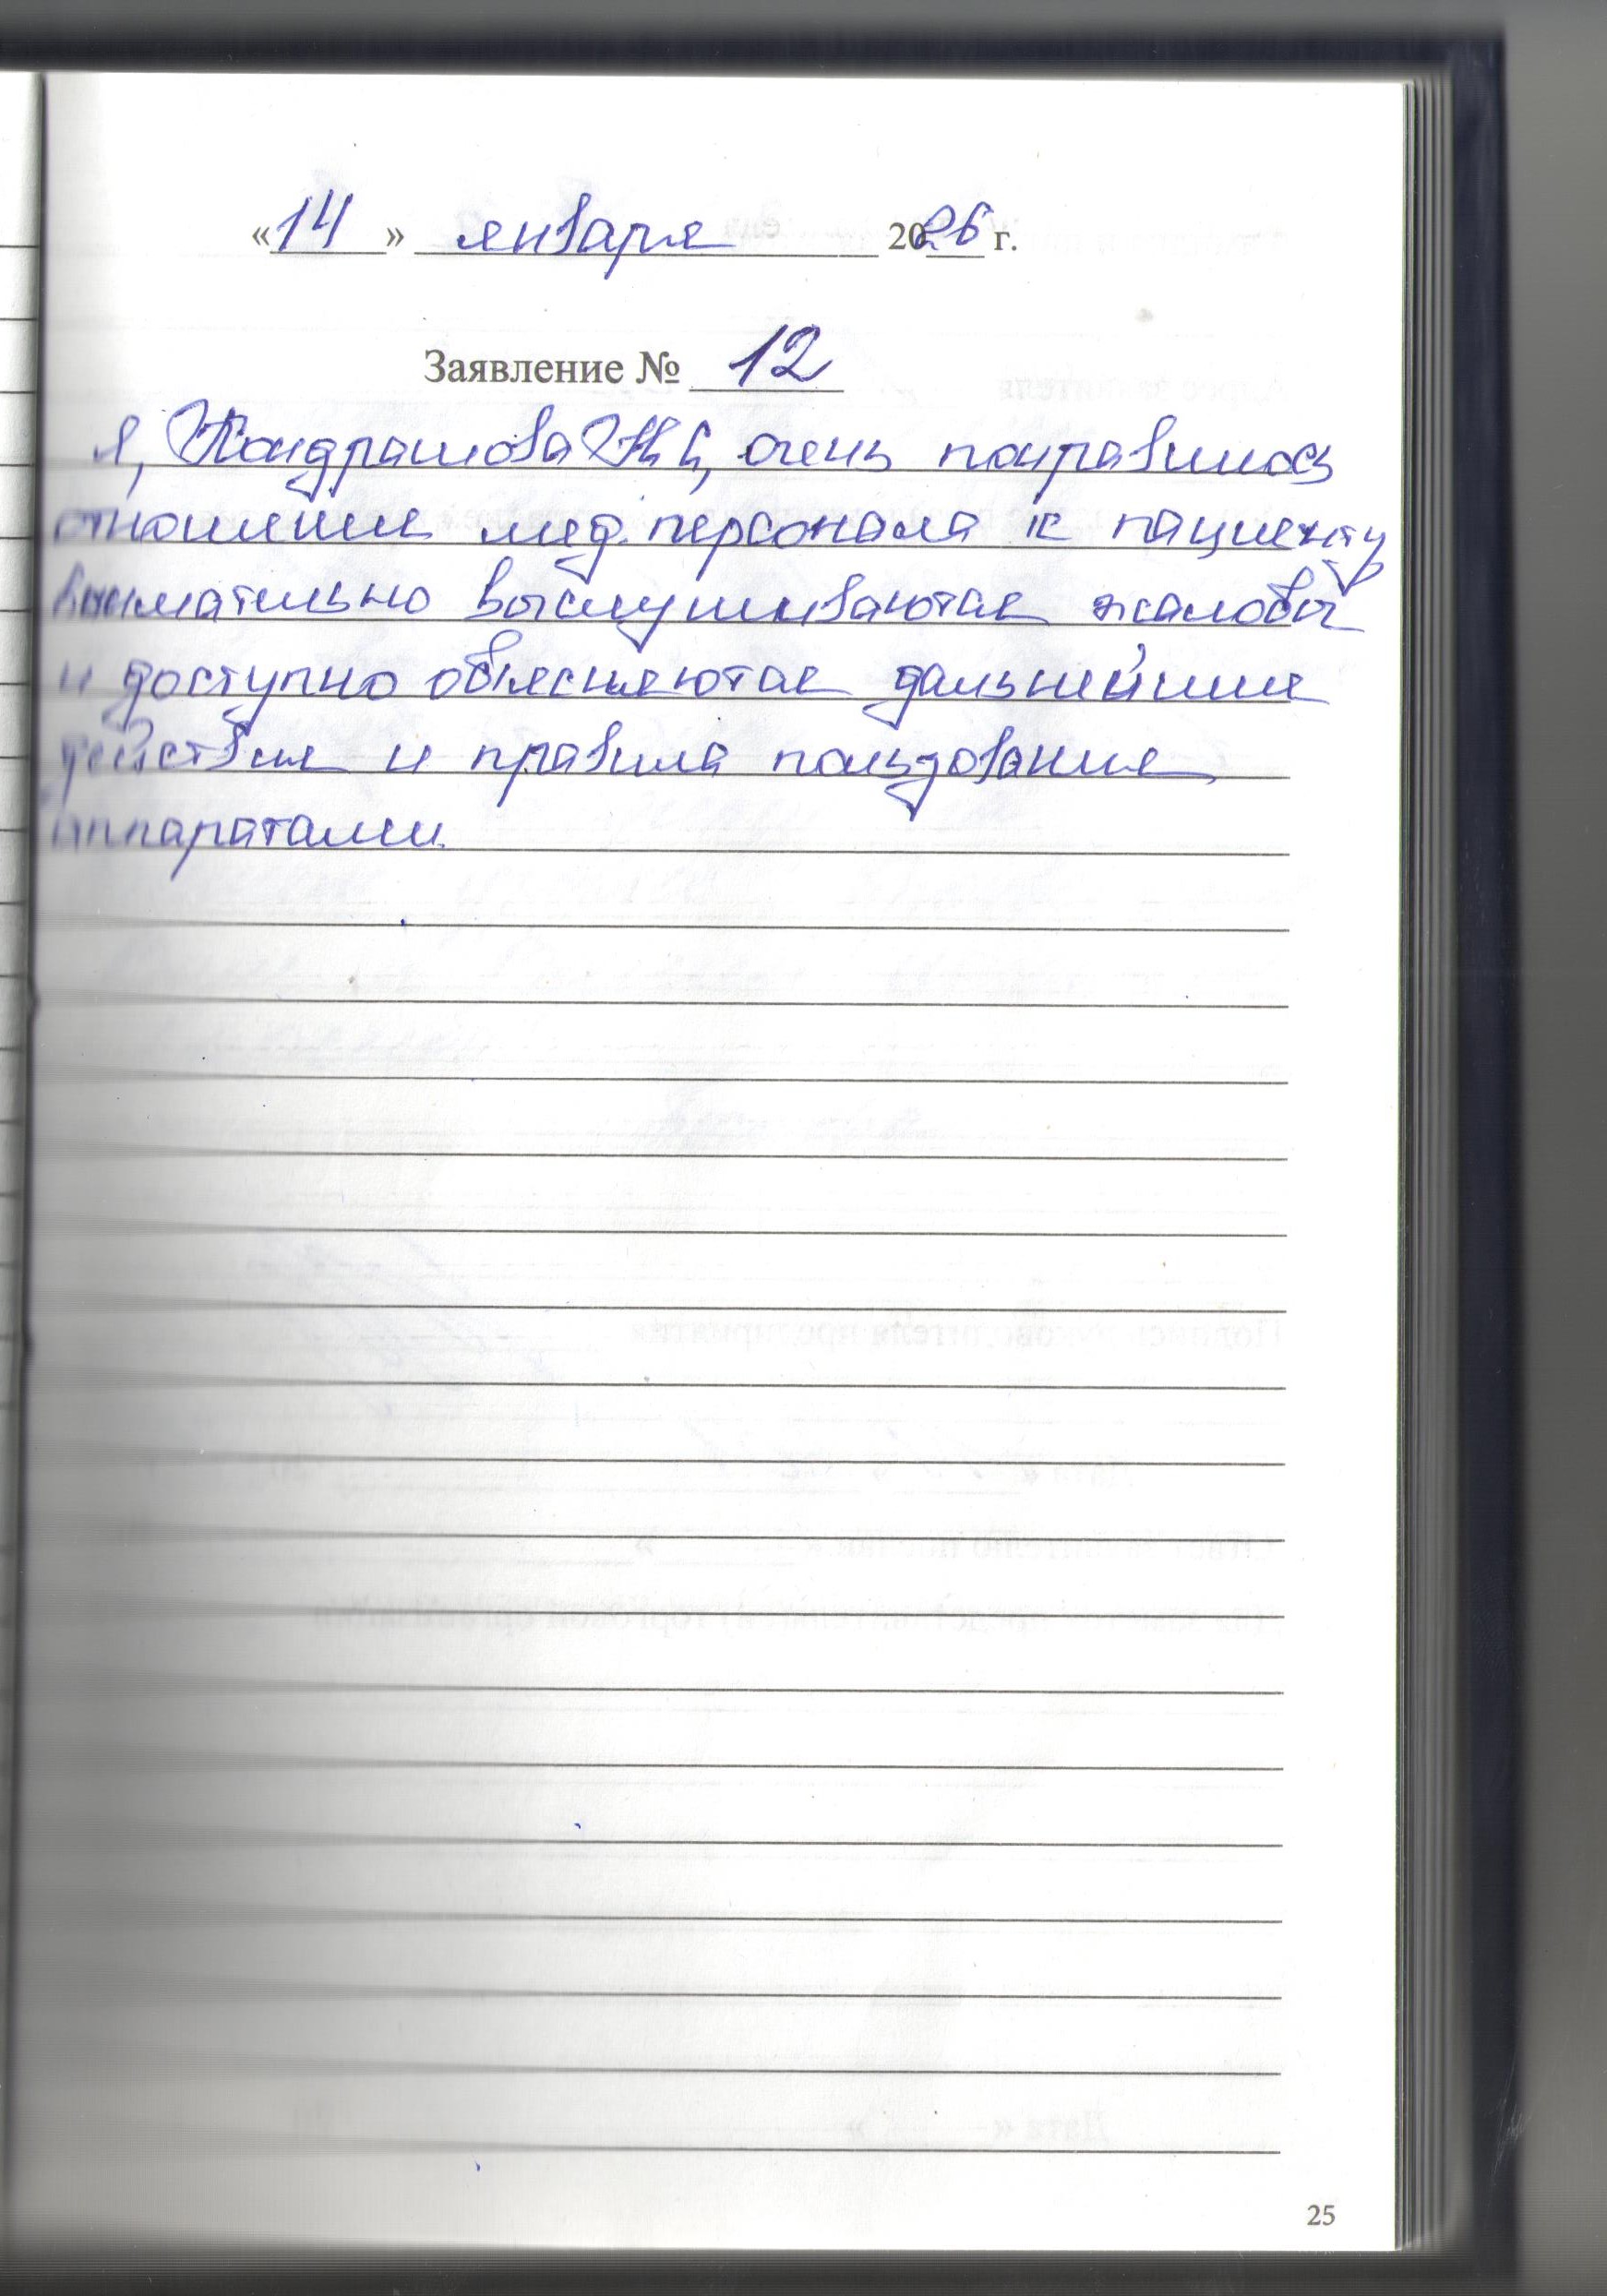 «14» января 2026 г.
Заявление № 12
Я, Кондрашова Н С, очень понравилось
отношение мед. персонала к пациенту
внимательно выслушиваются жалобы
и доступно объясняются дальнейшие
действия и правила пользования
аппаратами.
25